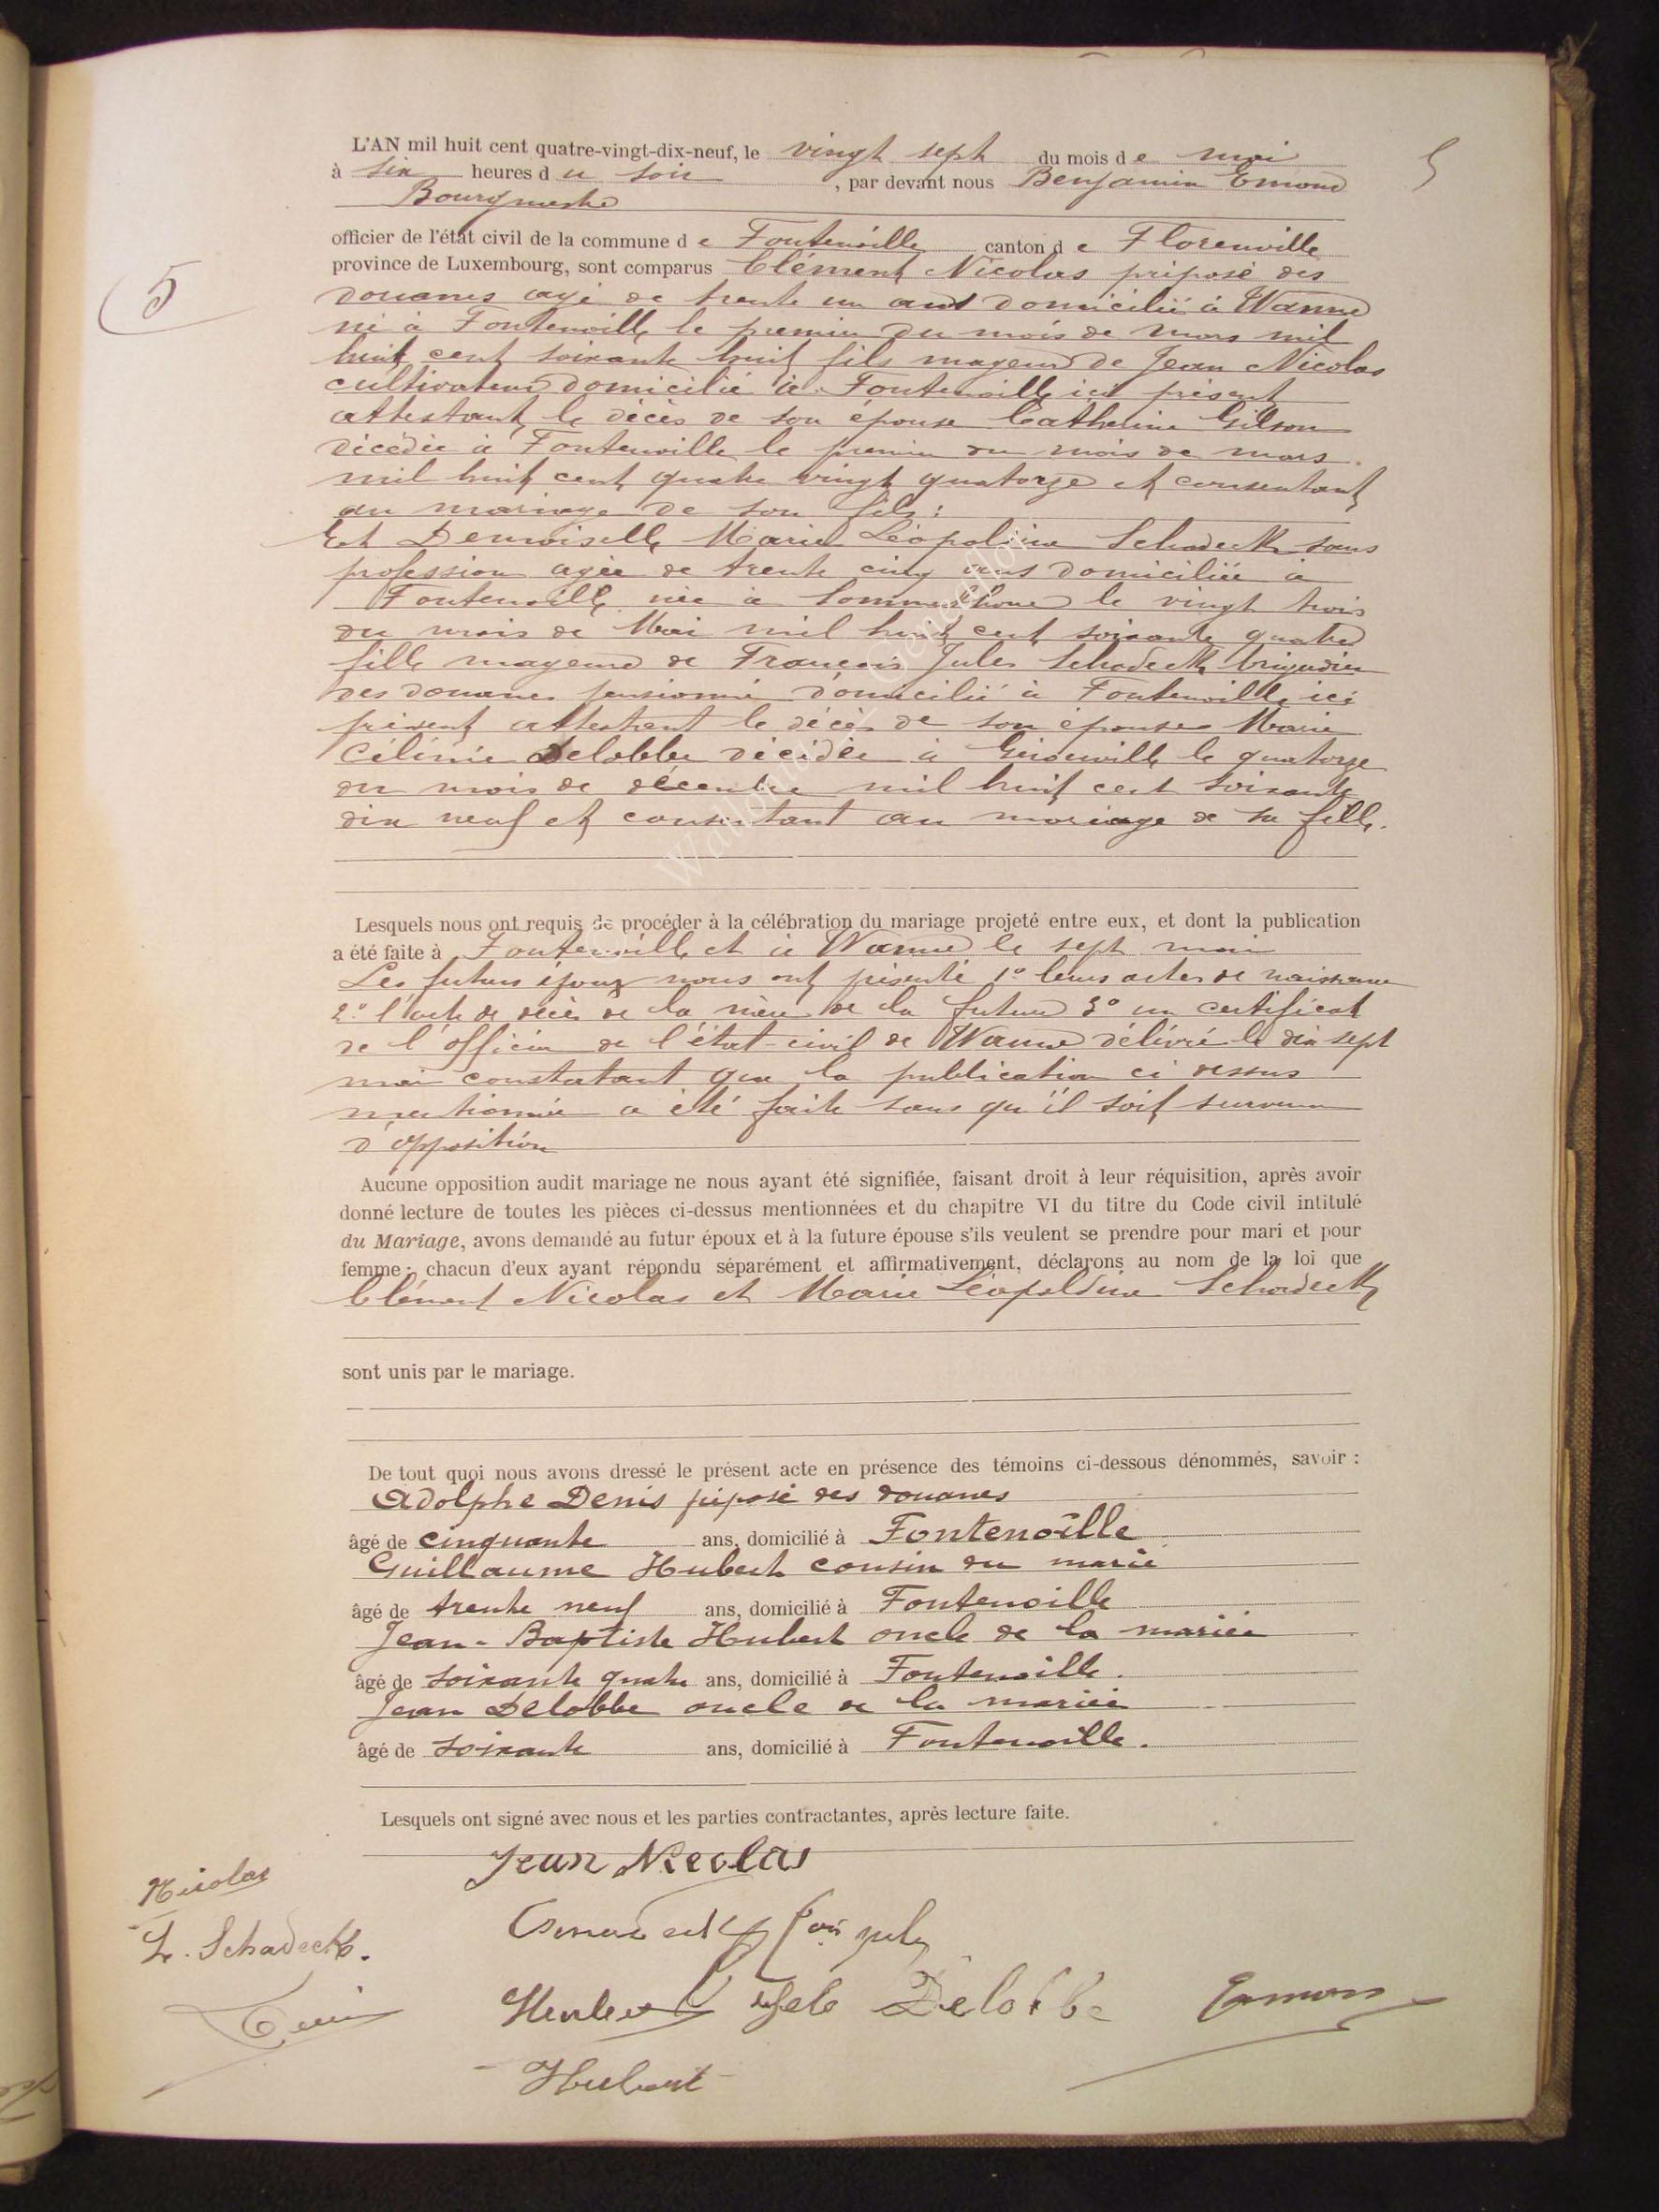 L'AN mil huit cent quatre-vingt-dix-neuf, le vingt sept du mois de mai
5
à six heures du soir, par devant nous Benjamin Emond
Bourgmestre
officier de l'état civil de la commune de Fontenoille canton de Florenville
5
province de Luxembourg, sont comparus Clément Nicolas préposé des
douanes agé de trente un ans domicilié à Wanne
né à Fontenoille le premier du mois de mars mil
huit cent soixante huit fils mageur de Jean Nicolas
cultivateur domicilié à Fontenoille ici présent
attestant le décès de son épouse Catherine Gilson
décédée à Fontenoille le premier du mois de mars
mil huit cent quatre vingt quatorze et consentant
au mariage de son fils :
Et Demoiselle Marie Léopoldine Schadeck sans
profession agée de trente cinq ans domiciliée à
Fontenoille née à le vingt trois
du mois de Mai mil huit cent soixante quatre
fille mageure de François Jules Schadeck brigadier
des douanes pensionné domicilié à Fontenoille ici
présent attestant le décès de son épouse Marie
Célinie Delobbe décédée à le quatorze
du mois de décembre mil huit cent soixante
dix neuf et consentant au mariage de sa fille.
Lesquels nous ont requis de procéder à la célébration du mariage projeté entre eux, et dont la publication
a été faite à Fontenoille et à Wanne le sept mai
Les futurs époux nous ont présenté 1° leurs actes de naissance
2° l'acte de décès de la mère de la future 3° un certificat
de l'officier de l'état-civil de Wanne délivré le dix sept
mai constatant que la publication ci dessus
mentionnée a été faite sans qu'il soit survenu
d'opposition
Aucune opposition audit mariage ne nous ayant été signifiée, faisant droit à leur réquisition, après avoir
donné lecture de toutes les pièces ci-dessus mentionnées et du chapitre VI du titre du Code civil intitulé
du Mariage, avons demandé au futur époux et à la future épouse s'ils veulent se prendre pour mari et pour
femme ; chacun d'eux ayant répondu séparément et affirmativement, déclarons au nom de la loi que
Clément Nicolas et Marie Léopoldine Schadeck
sont unis par le mariage.
De tout quoi nous avons dressé le présent acte en présence des témoins ci-dessous dénommés, savoir :
Adolphe Denis préposé des douanes
âgé de cinquante ans, domicilié à Fontenoille
Guillaume Hubert cousin du marié
âgé de trente neuf ans, domicilié à Fontenoille
Jean-Baptiste Hubert oncle de la mariée
âgé de soixante quatre ans, domicilié à Fontenoille.
Jean Delobbe oncle de la mariée
âgé de soixante ans, domicilié à Fontenoille.
Lesquels ont signé avec nous et les parties contractantes, après lecture faite.
Jean Nicolas
Nicolas
L. Schadeck.
Denis
Hubert Delobbe Emond
Hubert